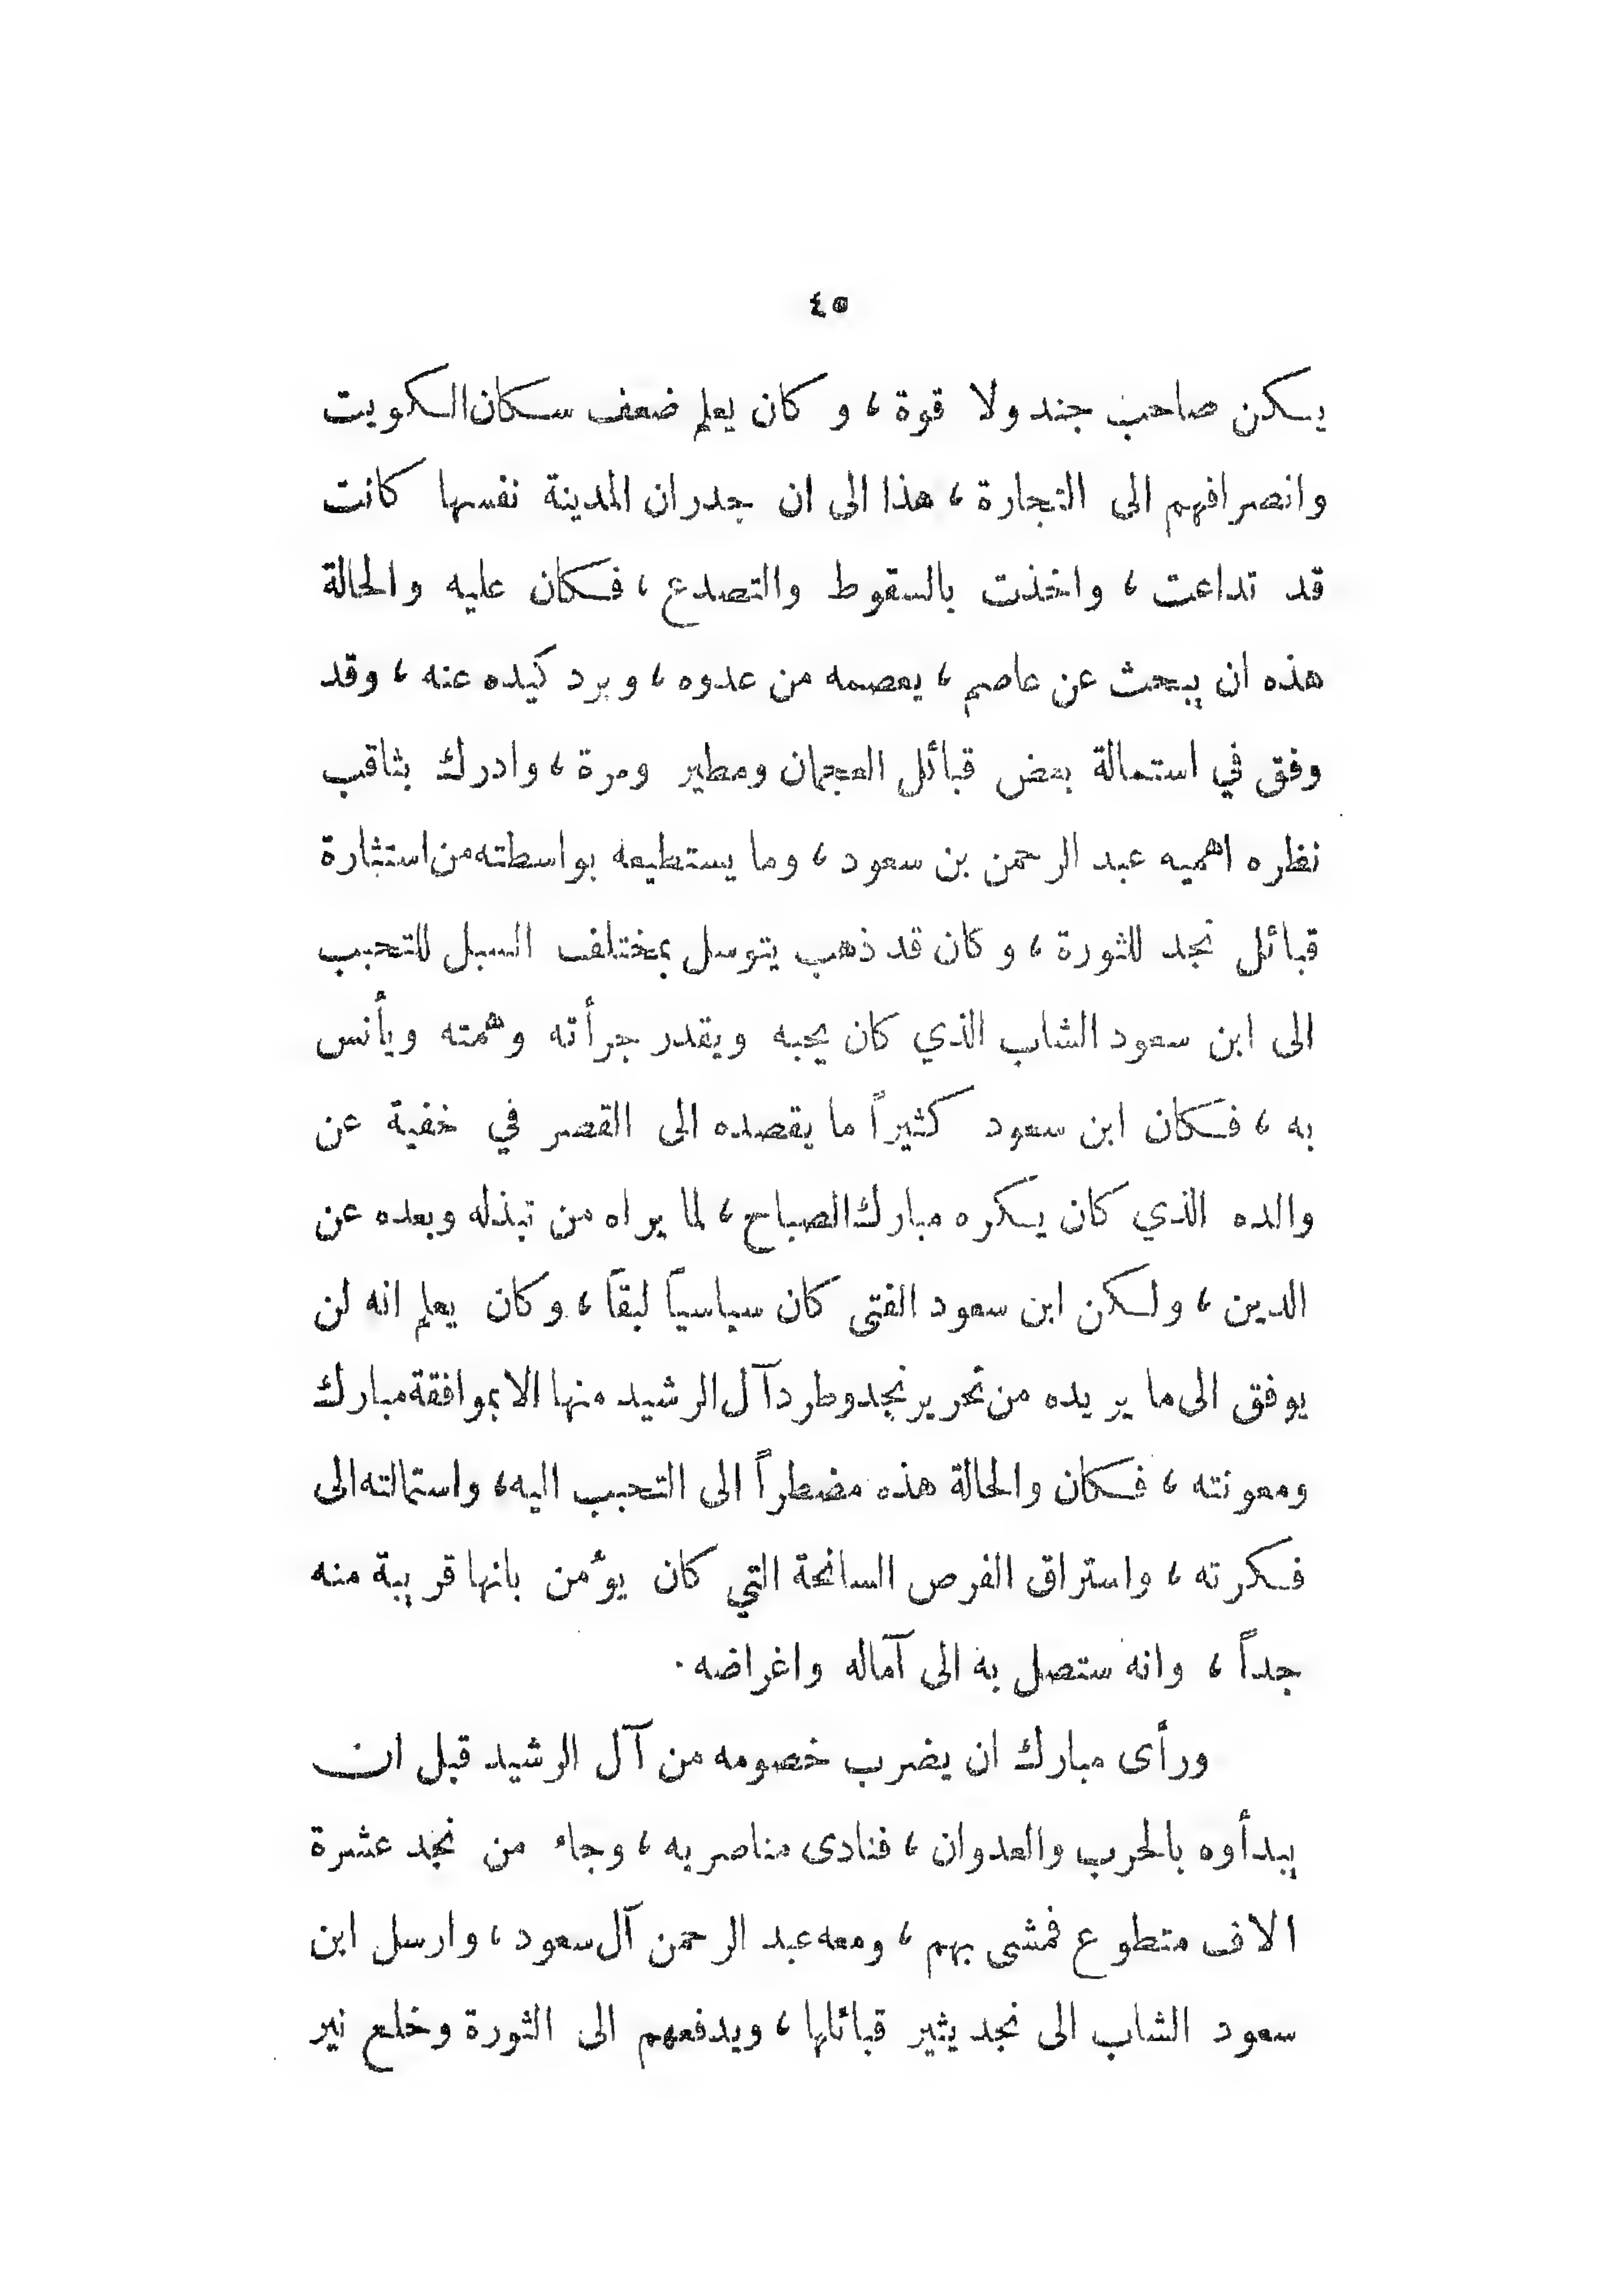 ٤٥
يكن صاحب جند ولا قوة ، وكان يعلم ضعف سكان الكويت
وانصرافهم الى التجارة ، هذا الى ان جدران المدينة نفسها كانت
قد تداعت ، واخذت بالسقوط والتصدع ، فكان عليه والحالة
هذه ان يبحث عن عاصم ، يعصمه من عدوه ، ويرد كيده عنه ، وقد
وفق في استمالة بعض قبائل العجمان ومطير ومرة ، وادرك بثاقب
نظره اهميه عبد الرحمن بن سعود ، وما يستطيعه بواسطته من استثارة
قبائل نجد للثورة ، وكان قد ذهب يتوسل بمختلف السبل للتحبب
الى ابن سعود الشاب الذي كان يحبه ويقدر جرأته وهمته ويأنس
به ، فكان ابن سعود كثيراً ما يقصده الى القصر في خفية عن
والده الذي كان يكره مبارك الصباح ، لما يراه من تبذله وبعده عن
الدين ، ولكن ابن سعود الفتى كان سياسياً لبقاً ، وكان يعلم انه لن
يوفق الى ما يريده من تحرير نجد وطرد آل الرشيد منها الا بموافقة مبارك
ومعونته ، فكان والحالة هذه مضطراً الى التحبب اليه ، واستمالته الى
فكرته ، واستراق الفرص السانحة التي كان يؤمن بانها قريبة منه
جداً ، وانه ستصل به الى آماله واغراضه .
ورأى مبارك ان يضرب خصومه من آل الرشيد قبل ان
يبدأوه بالحرب والعدوان ، فنادى مناصريه ، وجاء من نجد عشرة
الاف متطوع فمشى بهم ، ومعه عبد الرحمن آل سعود ، وارسل ابن
سعود الشاب الى نجد يثير قبائلها ، ويدفعهم الى الثورة وخلع نير